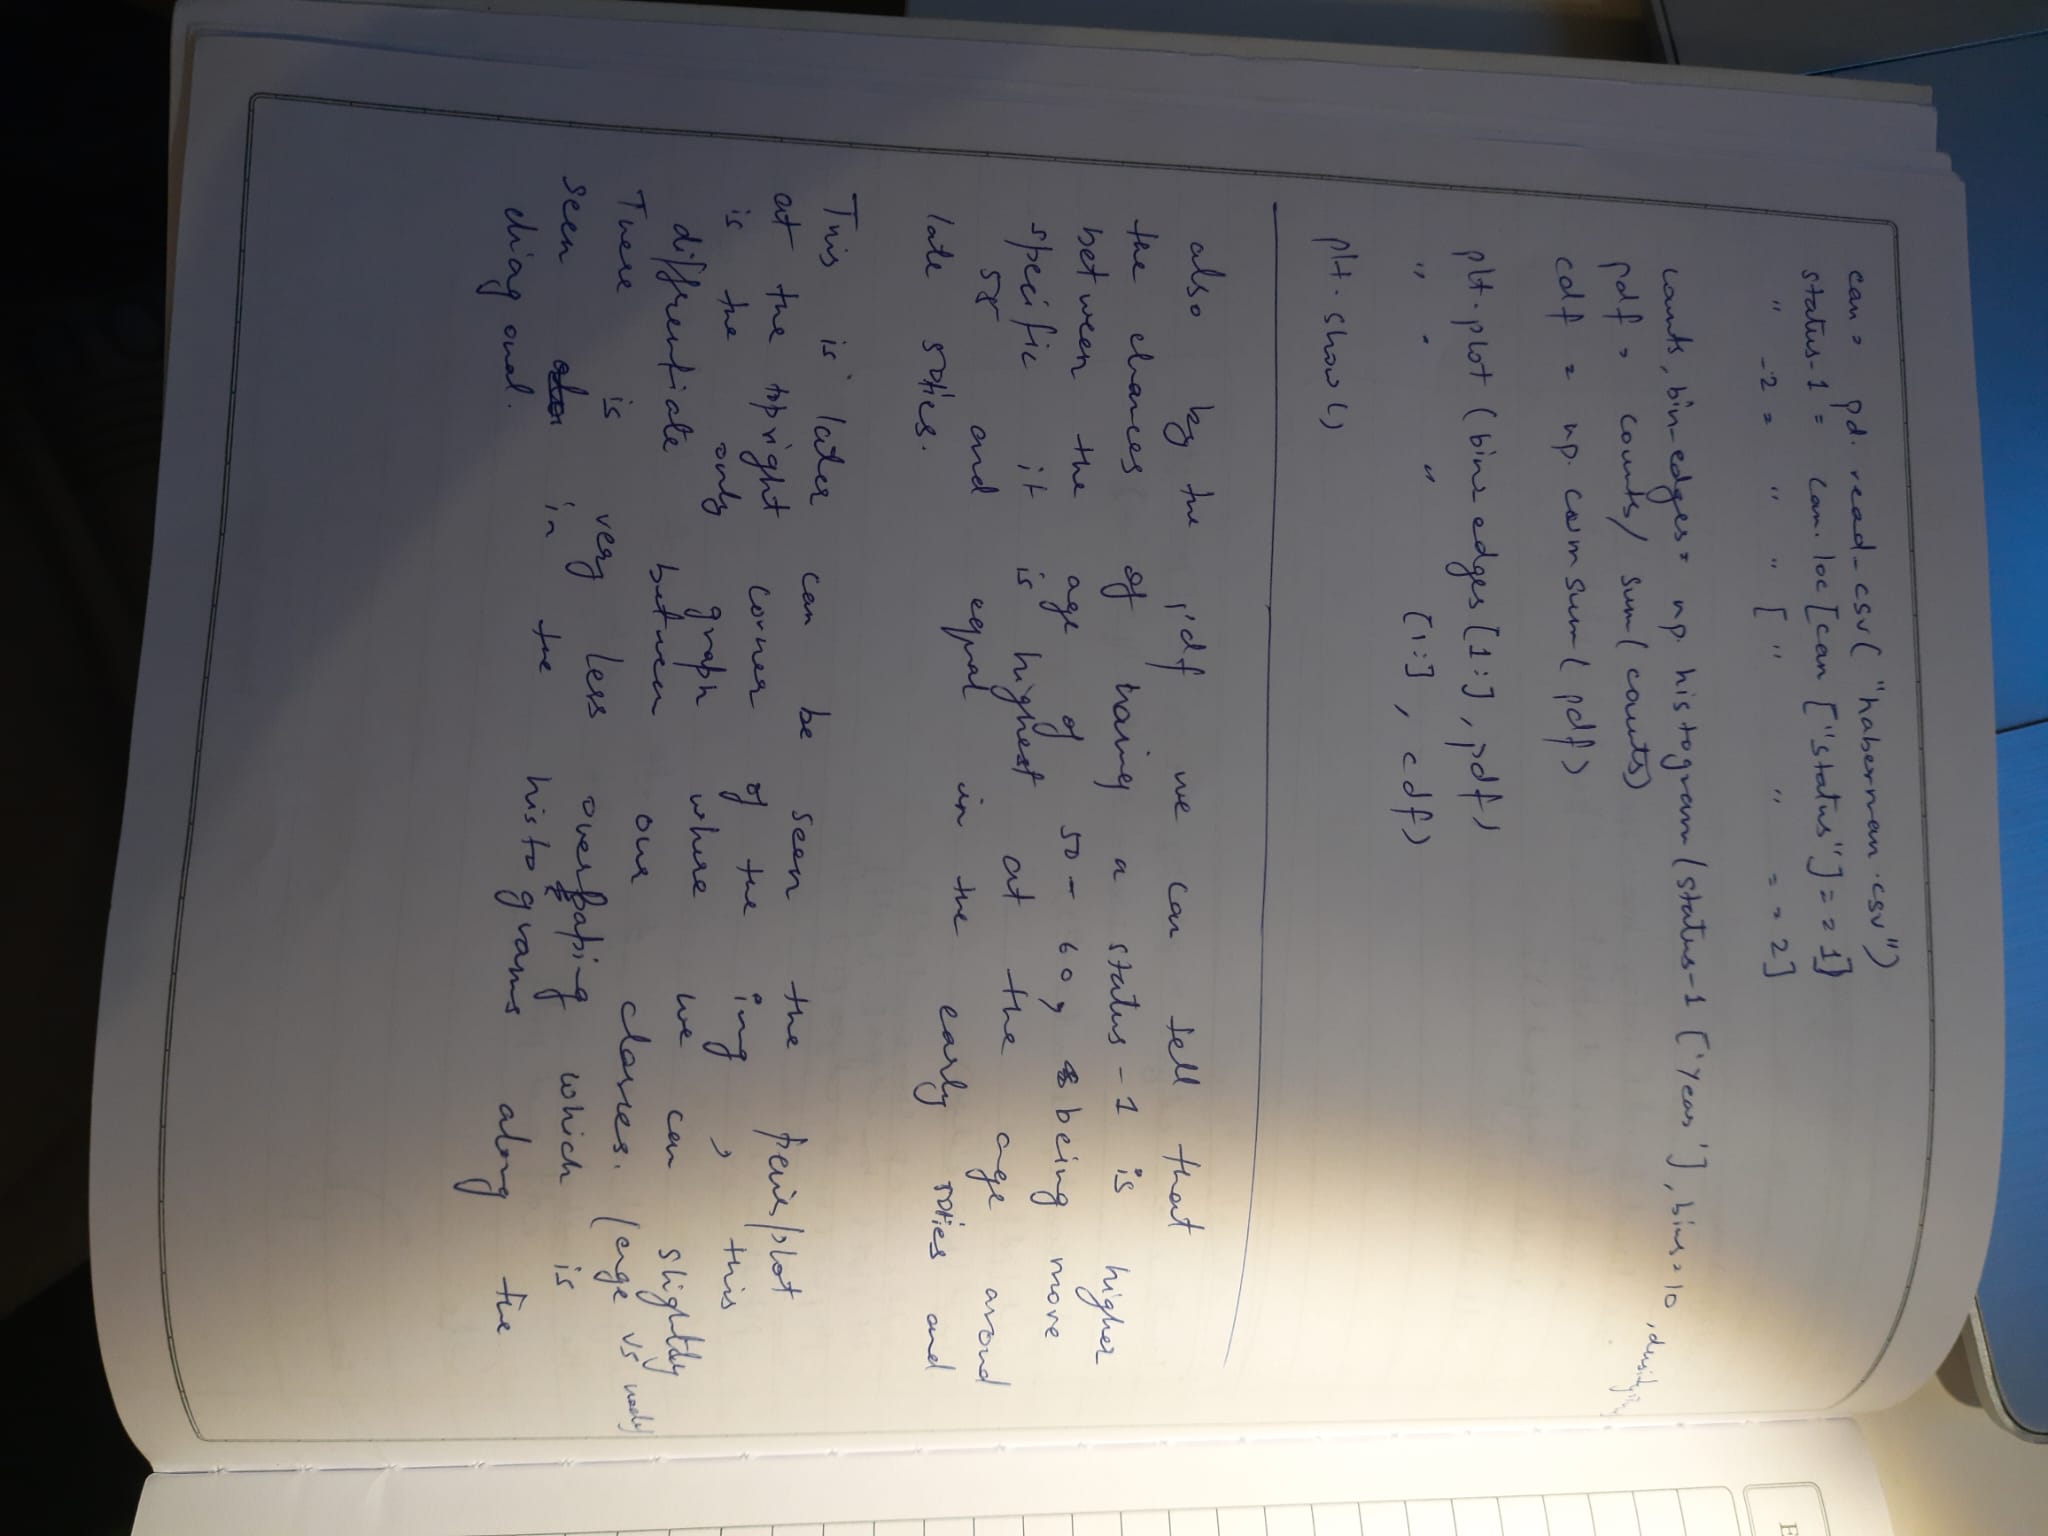 can = pd.read_csv("haberman.csv")
status_1 = can.loc[can["status"]==1]
" -2 = " " [ " " ==2]
counts, bin-edges = np.histogram(status-1['Year'], bins=10, density
pdf = counts/sum(counts)
cdf = np.comsum(pdf)
plt.plot(bins edges[1:], pdf)
" . " " [1:], cdf)
plt.show()
also by the pdf we can tell that
the chances of having a status-1 is higher
between the age of 50-60, being more
specific it is highest at the age around
58 and equal in the early 50ties and
late 50ties.
This is later can be seen the paris/plot
at the topright corner of the img, this
is the only graph where we can slightly
differentiate between our classes. (age vs nody
There is very less overlaping which is
seen in the histograms along the
diagonal.
E